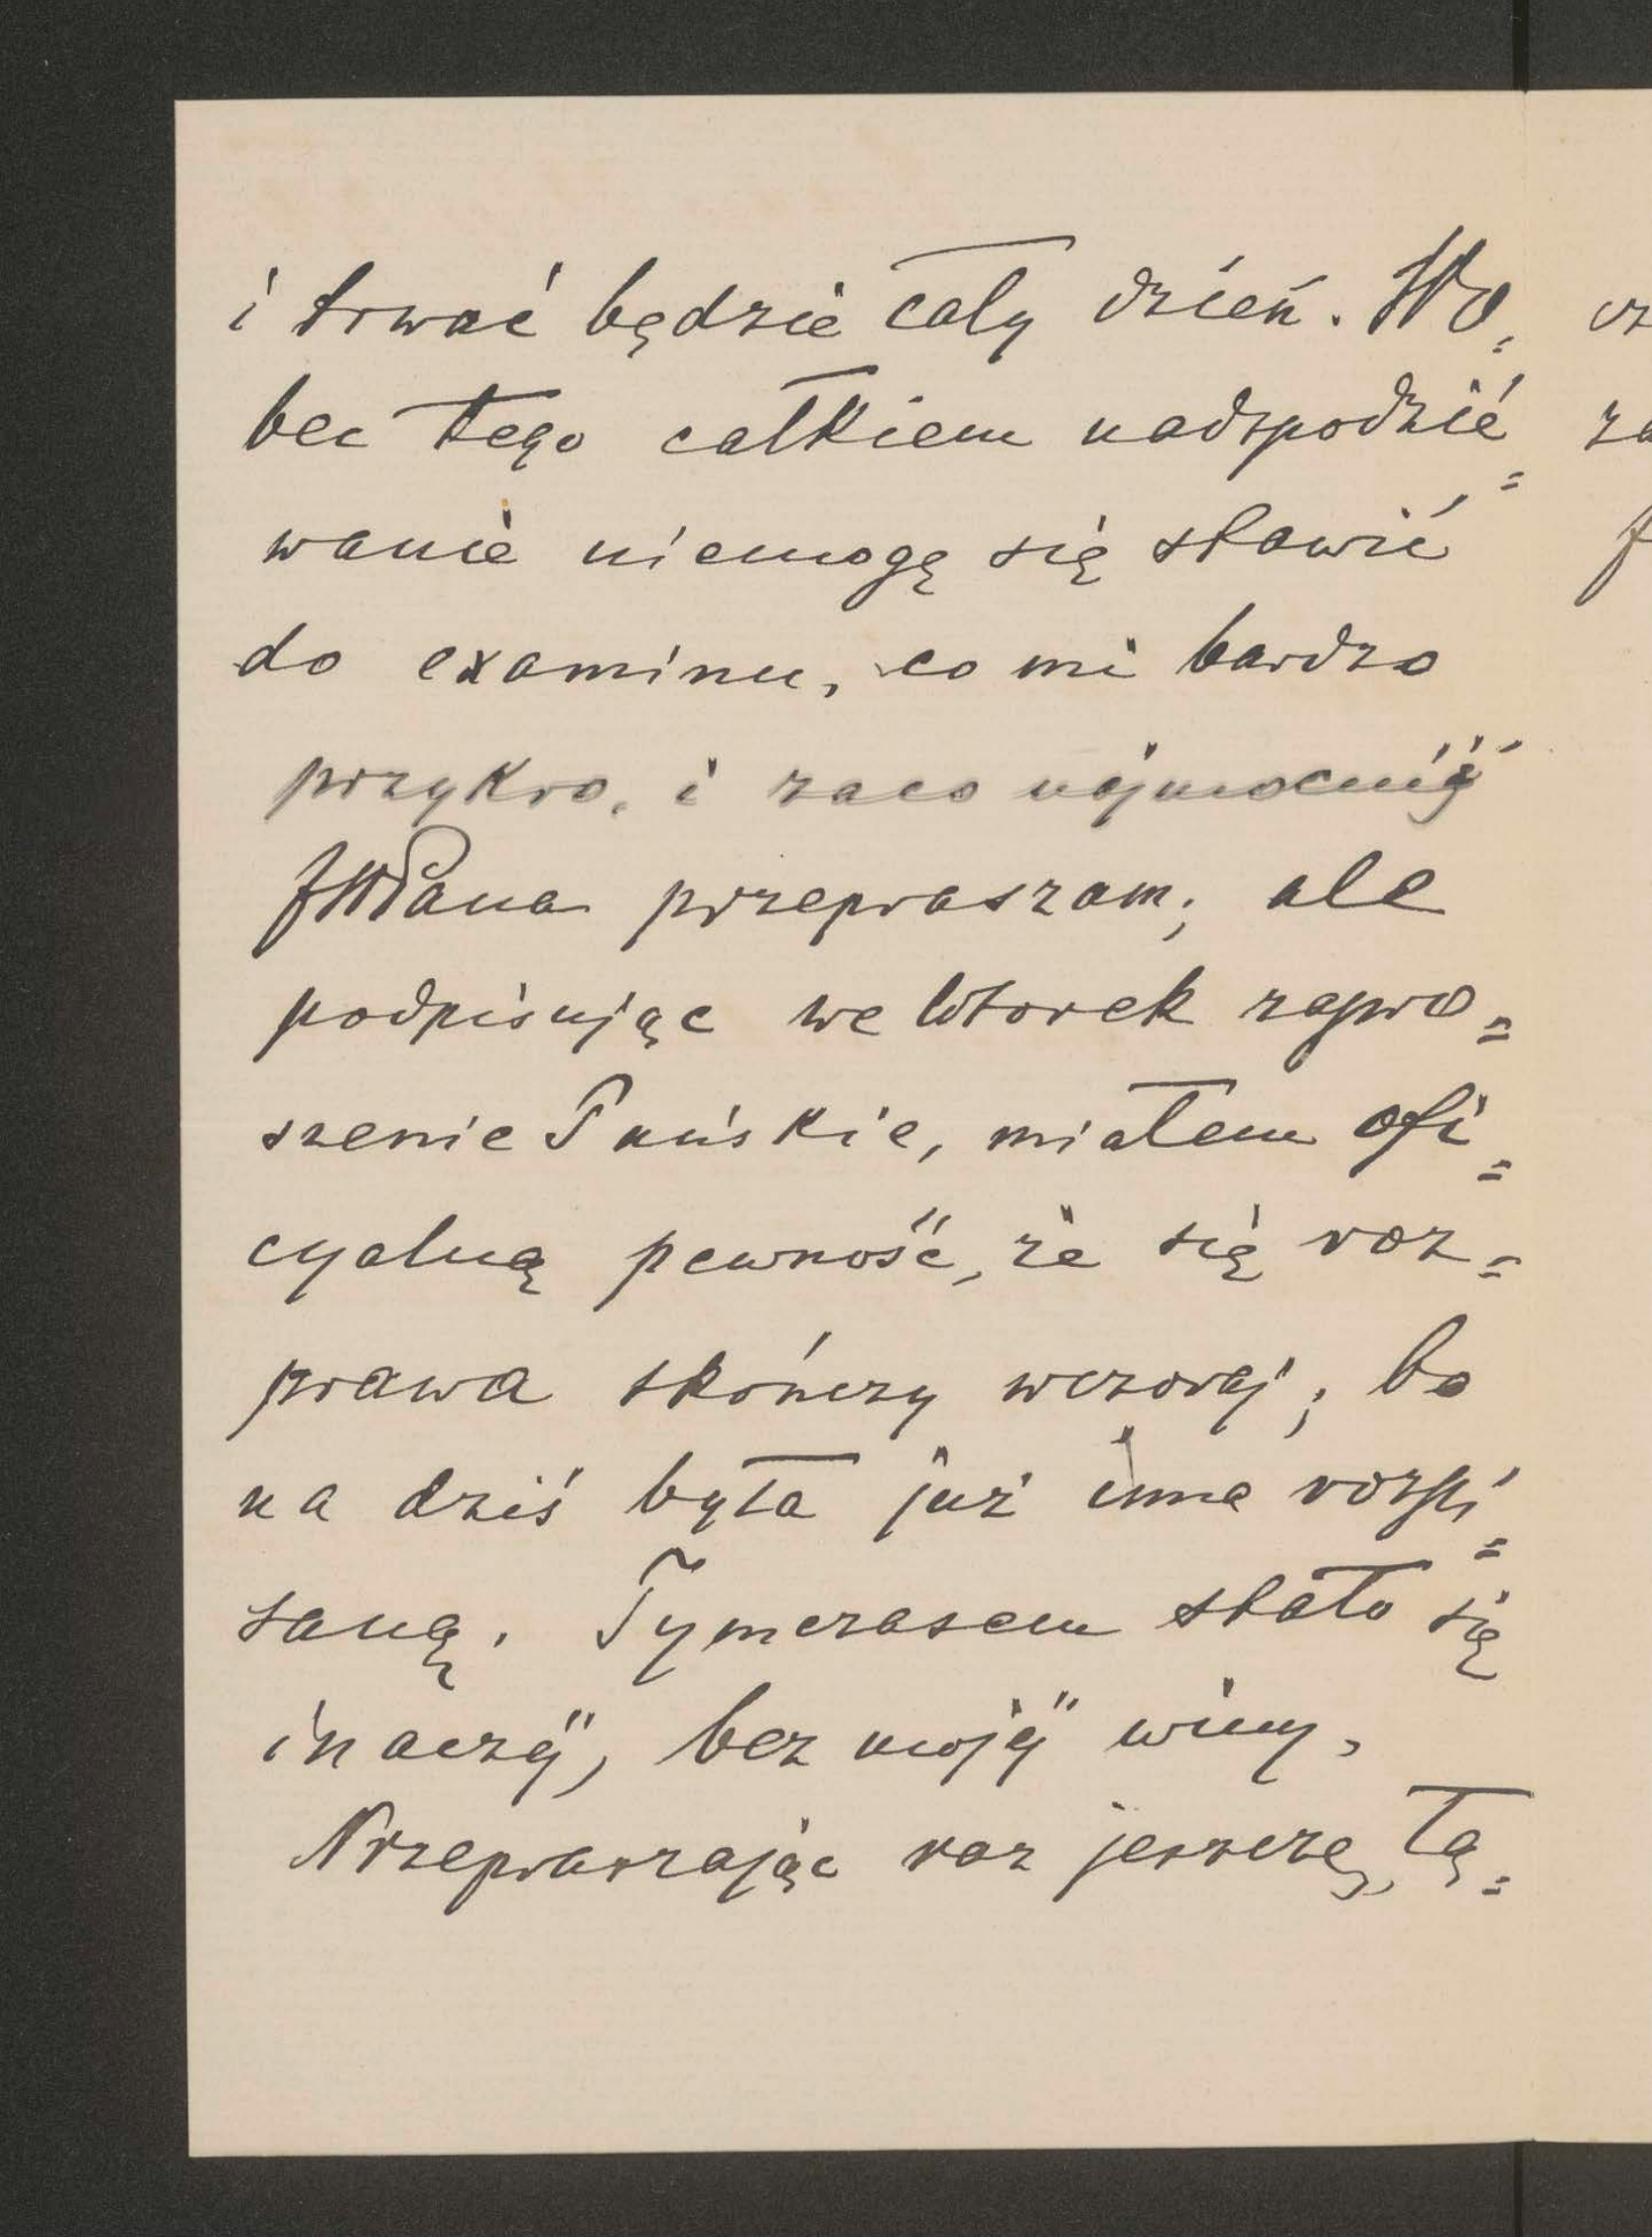 i trwać będzie cały dzień. Wo=
bec tego całkiem nadspodzié=
wanie niemogę się stawić
do examinu, co mi bardzo
przykro, i zaco najmocniéj
JWPana przepraszam; ale
podpisując we Wtorek zapro=
szenie Pańskie, miałem ofi=
cyalną pewność, że się roz=
prawa skończy wczoraj; bo
na dziś była już inna rozpi=
saną. Tymczasem stało się
inaczéj, bez mojéj winy,
Przepraszając raz jeszcze, łą=